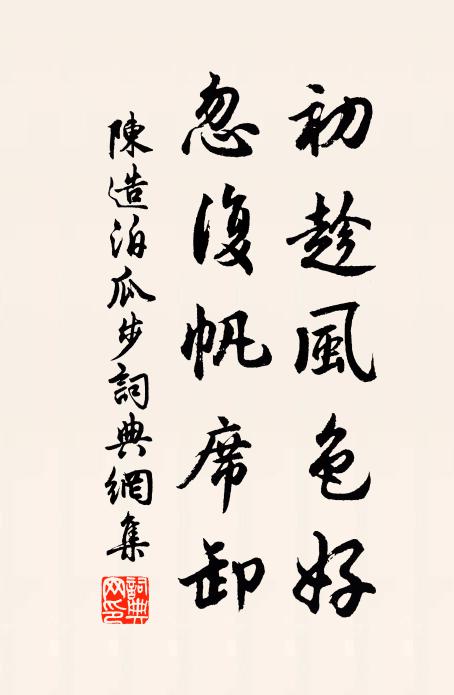 初趁風色好
忽復帆席卸
陳造泊瓜步詞典網集
詞典網印